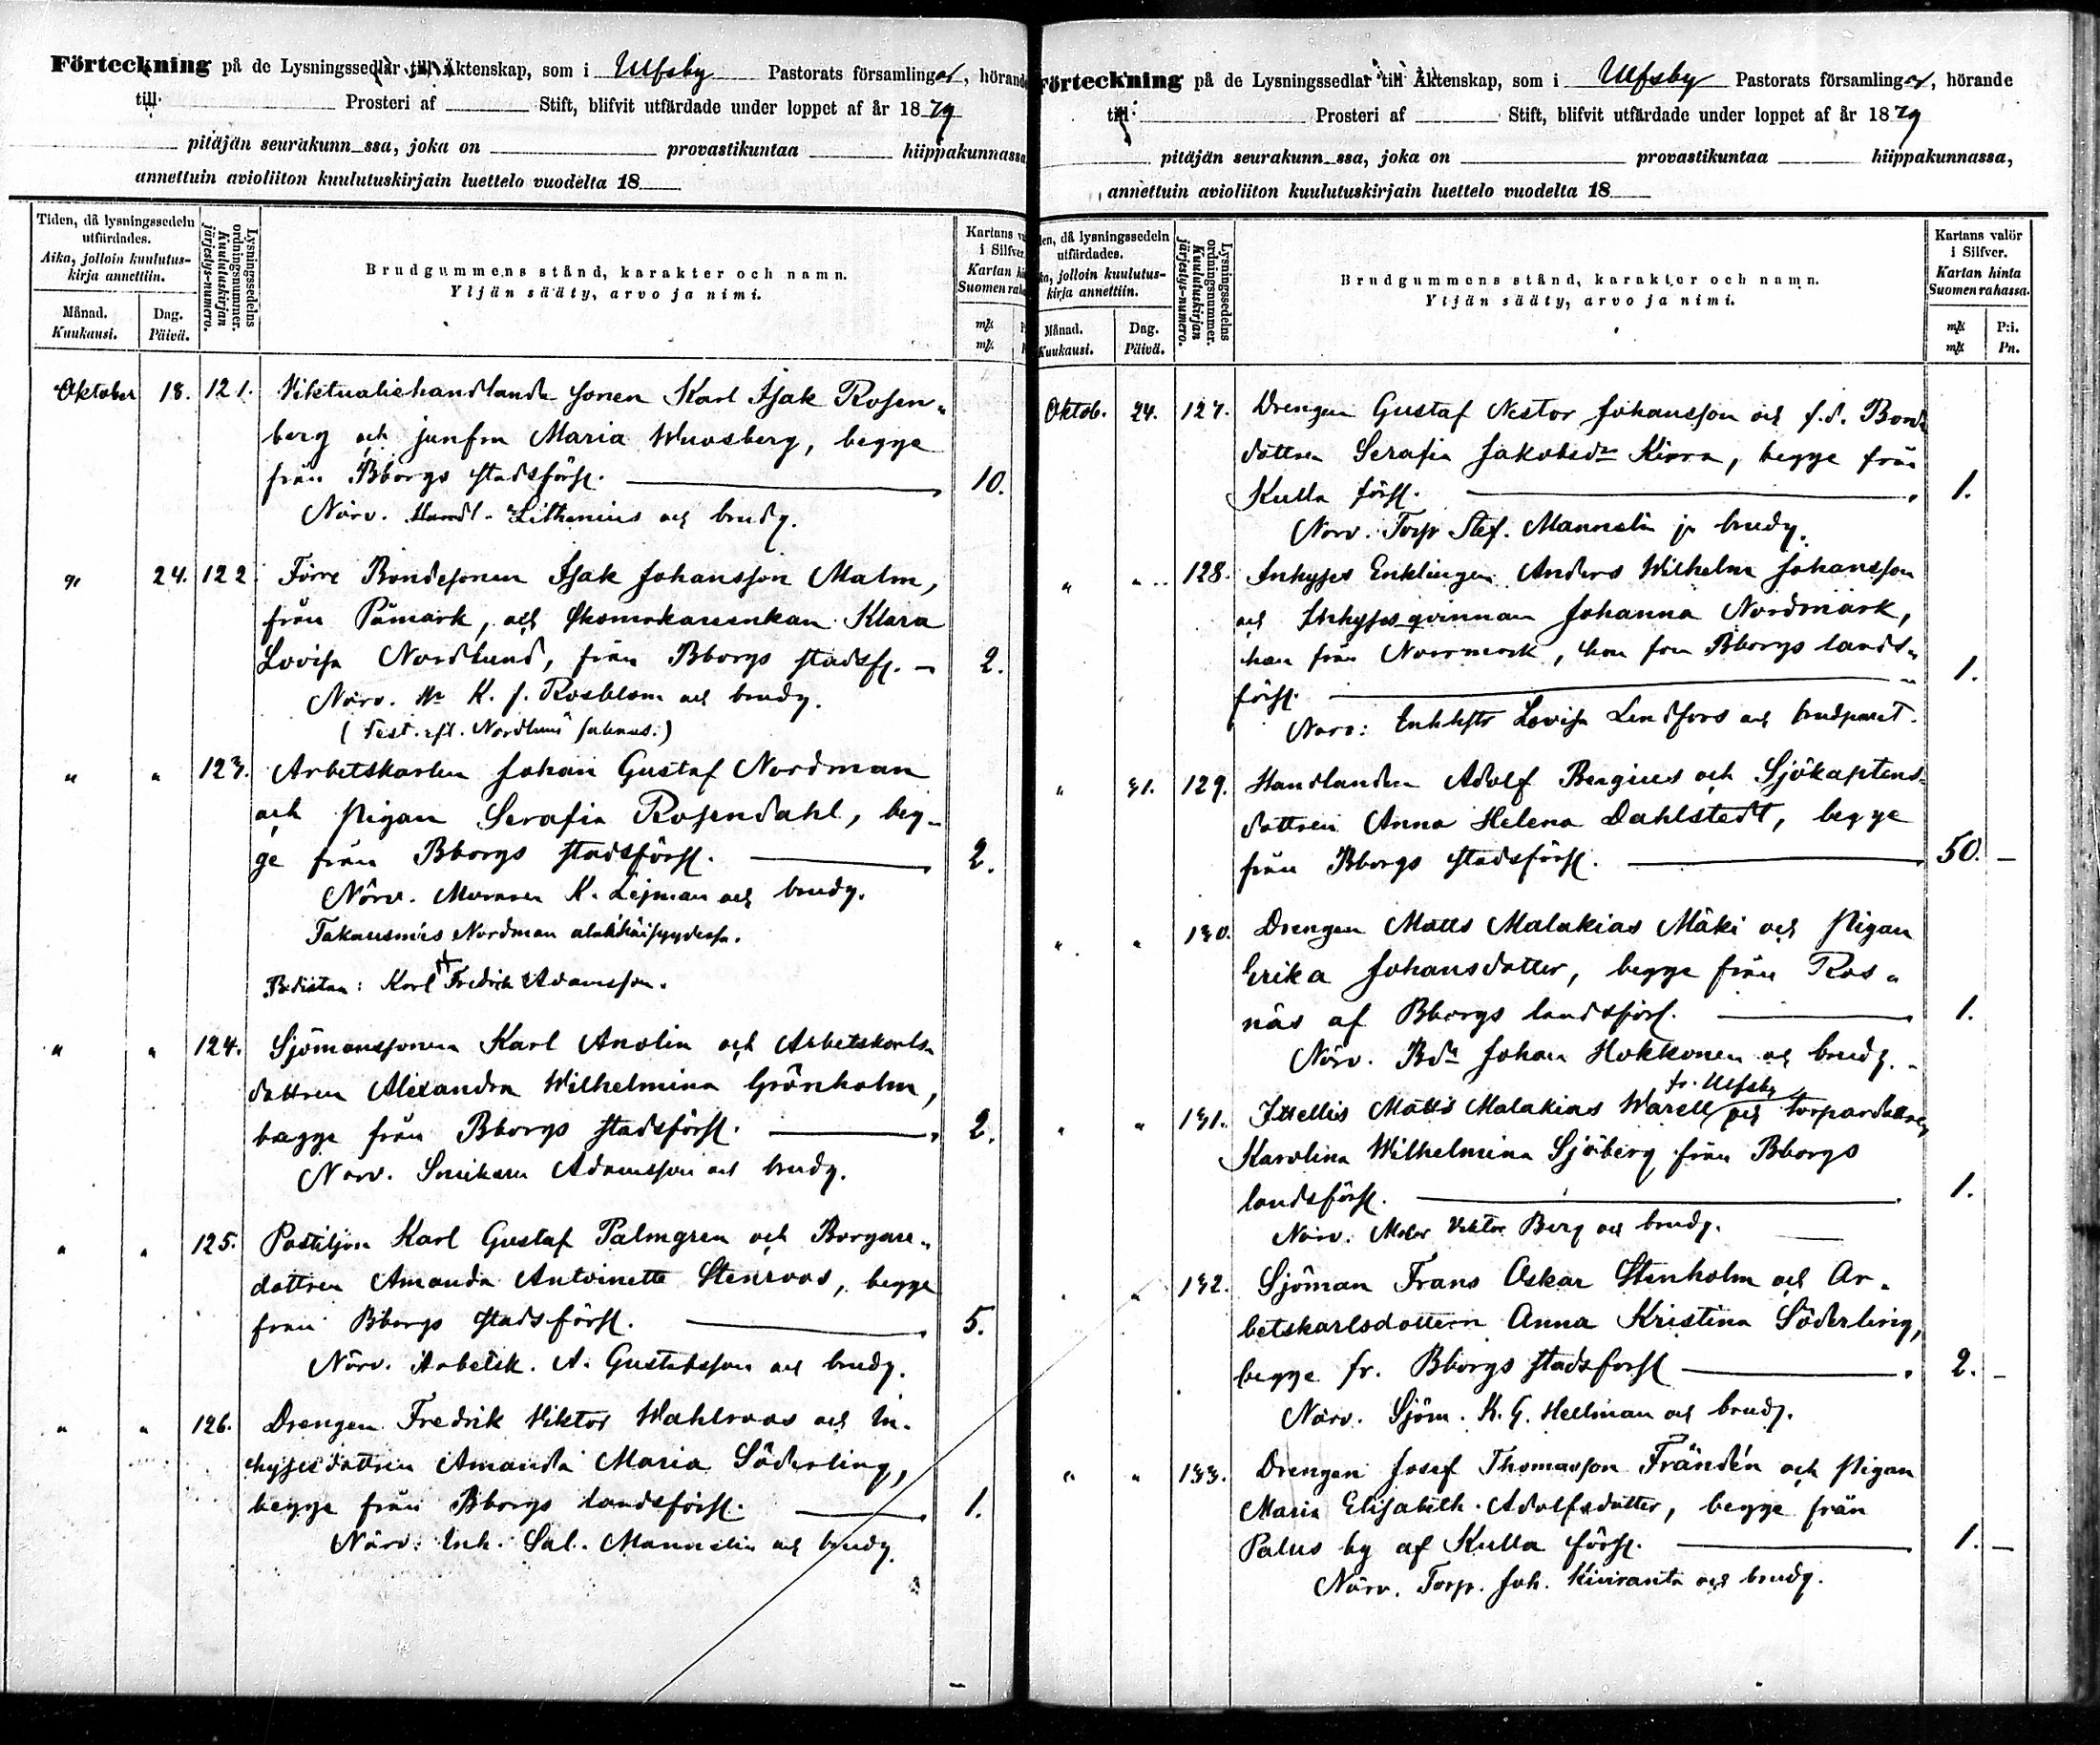 Förteckning på de Lysningssedlar till Äktenskap, som i Ulfsby Pastorats församlingar, hörande
till Prosteri af Stift, blifvit utfärdade under loppet af år 1879
pitäjän seurakunn ssa, joka on provastikuntaa hiippakunnassa
annettuin avioliiton kuulutuskirjain luettelo vuodelta 18
Tiden, då lysningssedeln
utfärdades.
Aika, jolloin kuulutus-
kirja annettiin.
Månad.
Kuukausi.
Dag.
Päivä.
Lysningssedelns
ordningsnummer.
Kuulutuskirjan
järjestys-numero.
Brudgummens stånd, karakter och namn.
Yljän sääty, arvo ja nimi.
Kartans
i Silfver.
Kartan
Suomen
mk
mk
Oktober 18. 121. Viktualiehandlande sonen Karl Isak Rosen-
berg och jungfrun Maria Wuosberg, begge
från Bborgs stadsförs. 10.
Närv. Handl. Lithenius och brudg.
" 24. 122. Förre Bondesonen Isak Johansson Malm,
från Påmark, och Skomakareenkan Klara
Lovisa Nordlund, från Bborgs stadsf. 2.
Närv. K. J. Rosblom och brudg.
(Test. eft. Nordlund saknas:)
" " 123. Arbetskarlen Johan Gustaf Nordman
och pigan Serafia Rosendahl, beg-
ge från Bborgs stadsförs. 2.
Närv. Muraren K. Lejman och brudg.
Takausmies Nordman alaikäisyydessä.
Karl Fredrik Adamsson.
" " 124. Sjömanssonen Karl Anolin och Arbetskarls-
dottren Alexandra Wilhelmina Grönholm,
begge från Bborgs stadsförs. 2.
Närv. Snickaren Adamsson och brudg.
" " 125. Postiljon Karl Gustaf Palmgren och Borgare-
dottren Amanda Antoinette Stenroos, begge
från Bborgs stadsförs. 5.
Närv. Arbetsk. A. Gustafsson och brudg.
" " 126. Drengen Fredrik Viktor Wahlroos och In-
hysesdottren Amanda Maria Söderling,
begge från Bborgs landsförs. 1.
Närv. Inh. Sal. Mannelin och brudg.
Förteckning på de Lysningssedlar till Äktenskap, som i Ulfsby Pastorats församlingar, hörande
till Prosteri af Stift, blifvit utfärdade under loppet af år 1879
pitäjän seurakunn ssa, joka on provastikuntaa hiippakunnassa,
annettuin avioliiton kuulutuskirjain luettelo vuodelta 18
då lysningssedeln
utfärdades.
jolloin kuulutus-
kirja annettiin.
Månad.
Kuukausi.
Dag.
Päivä.
Lysningssedelns
ordningsnummer.
Kuulutuskirjan
järjestys-numero.
Brudgummens stånd, karakter och namn.
Yljän sääty, arvo ja nimi.
Kartans valör
i Silfver.
Kartan hinta
Suomen rahassa.
mk P:i.
mk Pn.
Oktob. 24. 127. Drengen Gustaf Nestor Johansson och f.d. Bonde
dottren Serafia Jakobsdr Kirra, begge från
Kulla förs. 1.
Närv. Torp Stef. Mannelin jr brudg.
" " 128. Inhyses Enklingen Anders Wilhelm Johansson
och Inhysesqvinnan Johanna Nordmark,
han från Norrmark, hon från Bborgs lands-
förs. 1.
Närv: Lovisa Lindfors och brudparet.
" 31. 129. Handlanden Adolf Bengius och Sjökaptens-
dottren Anna Helena Dahlstedt, begge
från Bborgs stadsförs. 50. –
" " 130. Drengen Matts Malakias Mäki och pigan
Erika Johansdotter, begge från Ros-
näs af Bborgs landsförs. 1.
Närv. Bdn Johan Hokkonen och brudg.
fr. Ulfsby
" " 131. Ittellis Matts Malakias Warell och torpardottren
Karolina Wilhelmina Sjöberg från Bborgs
landsförs. 1.
Närv. Målar Viktor Berg och brudg.
" " 132. Sjöman Frans Oskar Stenholm och Ar-
betskarlsdottern Anna Kristina Söderling,
begge fr. Bborgs stadsförs 2. –
Närv. Sjöm. K. G. Hellman och brudg.
" " 133. Drengen Josef Thomasson Frändén och pigan
Maria Elisabeth Adolfsdotter, begge från
Palus by af Kulla förs. 1. –
Närv. Torp. Joh. Kiviranta och brudg.